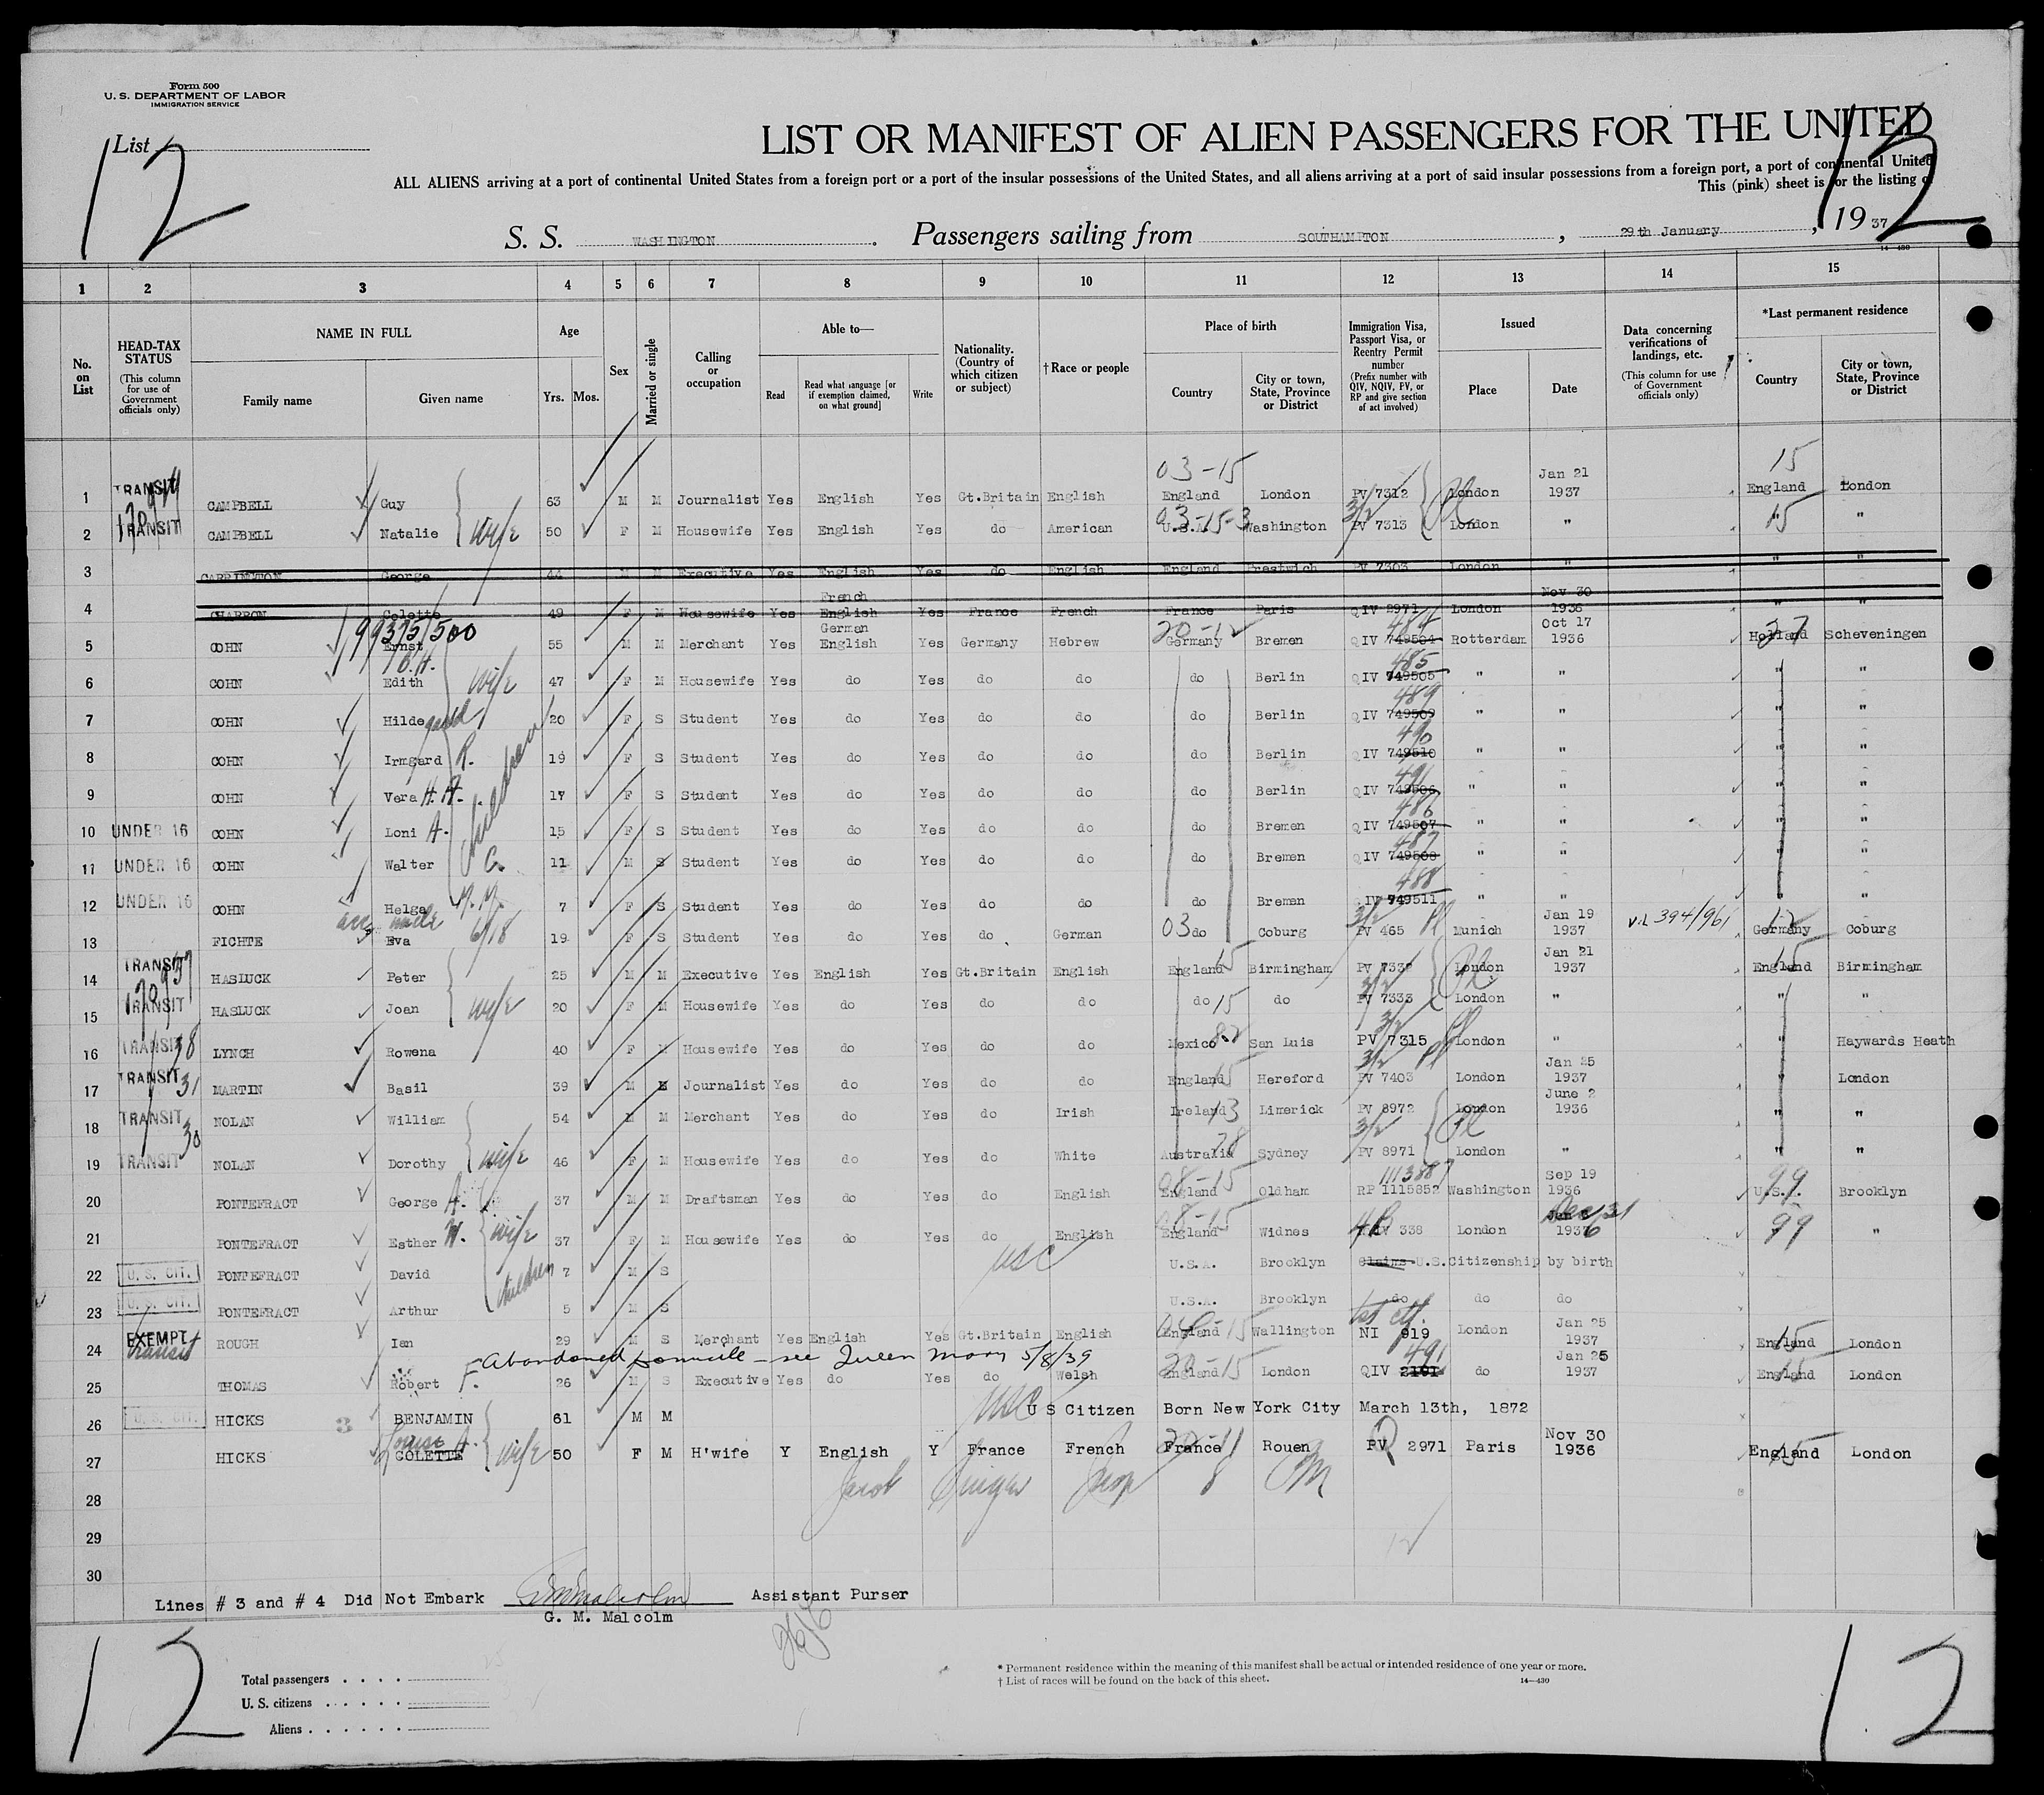 Form 500
U. S. DEPARTMENT OF LABOR
IMMIGRATION SERVICE
List 12
12
LIST OR MANIFEST OF ALIEN PASSENGERS FOR THE UNITED
ALL ALIENS arriving at a port of continental United States from a foreign port or a port of the insular possessions of the United States, and all aliens arriving at a port of said insular possessions from a foreign port, a port of continental United
This (pink) sheet is for the listing o
S. S. WASHINGTON. Passengers sailing from SOUTHAMPTON, 29th January, 1937
14-430
1 2 3 4 5 6 7 8 9 10 11 12 13 14 15
No. on List
HEAD-TAX STATUS (This column for use of Government officials only)
NAME IN FULL Family name Given name
Age Yrs. Mos.
Sex
Married or single
Calling or occupation
Able to— Read Read what language [or if exemption claimed, on what ground] Write
Nationality. (Country of which citizen or subject)
†Race or people
Place of birth Country City or town, State, Province or District
Immigration Visa, Passport Visa, or Reentry Permit number (Prefix number with QIV, NQIV, PV, or RP and give section of act involved)
Issued Place Date
Data concerning verifications of landings, etc. (This column for use of Government officials only)
*Last permanent residence Country City or town, State, Province or District
1 TRANSIT CAMPBELL Guy 63 M M Journalist Yes English Yes Gt.Britain English 03-15 England London PV 7312 London Jan 21 1937 15 England London
2 TRANSIT CAMPBELL Natalie wife 50 F M Housewife Yes English Yes do American 03-15-3 U.S.A. Washington 3/2 PV 7313 London " 15 "
3 CARRINGTON George 44 M M Executive Yes English Yes do English England Prestwich PV 7303 London " " "
4 CHARRON Colette 49 F M Housewife Yes French English Yes France French France Paris QIV 2971 London Nov 30 1936 " "
5 COHN Ernst 99375/500 55 M M Merchant Yes German English Yes Germany Hebrew Germany Bremen QIV 749504 484 Rotterdam Oct 17 1936 Holland 37 Scheveningen
6 COHN Edith wife 47 F M Housewife Yes do Yes do do do Berlin QIV 749505 485 " " " "
7 COHN Hildegard 20 F S Student Yes do Yes do do do Berlin QIV 749509 489 " " " "
8 COHN Irmgard R. 19 F S Student Yes do Yes do do do Berlin QIV 749510 490 " " " "
9 COHN Vera H. A. children 17 F S Student Yes do Yes do do do Berlin QIV 749506 491 " " " "
10 UNDER 16 COHN Loni A. 15 F S Student Yes do Yes do do do Bremen QIV 749507 486 " " " "
11 UNDER 16 COHN Walter C. 11 M S Student Yes do Yes do do do Bremen QIV 749508 487 " " " "
12 UNDER 16 COHN Helga 7 F S Student Yes do Yes do do do Bremen QIV 749511 488 " " " "
13 FICHTE Eva acc uncle 6/18 19 F S Student Yes do Yes do German 03 do Coburg 3/2 PV 465 Munich Jan 19 1937 V.L. 394/961 Germany Coburg
14 TRANSIT HASLUCK Peter 25 M M Executive Yes English Yes Gt.Britain English England 15 Birmingham PV 7332 London Jan 21 1937 England 15 Birmingham
15 TRANSIT HASLUCK Joan wife 20 F M Housewife Yes do Yes do do do 15 do 3/2 PV 7333 London " " "
16 TRANSIT 38 LYNCH Rowena 40 F M Housewife Yes do Yes do do Mexico 82 San Luis 3/2 PV 7315 London " " Haywards Heath
17 TRANSIT 31 MARTIN Basil 39 M M Journalist Yes do Yes do do England 15 Hereford 3/2 PV 7403 London Jan 25 1937 " London
18 TRANSIT NOLAN William 54 M M Merchant Yes do Yes do Irish Ireland 13 Limerick PV 8972 London June 2 1936 " "
19 TRANSIT 30 NOLAN Dorothy wife 46 F M Housewife Yes do Yes do White Australia 28 Sydney 3/2 PV 8971 London " " "
20 PONTEFRACT George A. 37 M M Draftsman Yes do Yes do English 08-15 England Oldham RP 1115852 111388 Washington Sep 19 1936 U.S.A. 99 Brooklyn
21 PONTEFRACT Esther W. wife 37 F M Housewife Yes do Yes do English 08-15 England Widnes 338 London Dec 31 1936 99 "
22 U. S. CIT. PONTEFRACT David children 7 M S USC U.S.A. Brooklyn Claims U.S.Citizenship by birth
23 U. S. CIT. PONTEFRACT Arthur 5 M S U.S.A. Brooklyn do do do
24 EXEMPT Transit ROUGH Ian 29 M S Merchant Yes English Yes Gt.Britain English England 15 Wallington NI 919 London Jan 25 1937 England 15 London
Abandoned domicile - see Queen Mary 5/8/39
25 THOMAS Robert F. 26 M S Executive Yes do Yes do Welsh 20-15 England London QIV 2191 491 do Jan 25 1937 England 15 London
26 U. S. CIT. HICKS BENJAMIN 61 M M USC U S Citizen Born New York City March 13th, 1872
27 HICKS COLETTE Louise A. wife 50 F M H'wife Y English Y France French France Rouen PV Q 2971 Paris Nov 30 1936 England 15 London
28
29
30
Lines # 3 and # 4 Did Not Embark G M Malcolm Assistant Purser
G. M. Malcolm
12
12
Total passengers
U. S. citizens
Aliens
* Permanent residence within the meaning of this manifest shall be actual or intended residence of one year or more.
† List of races will be found on the back of this sheet.
14—430